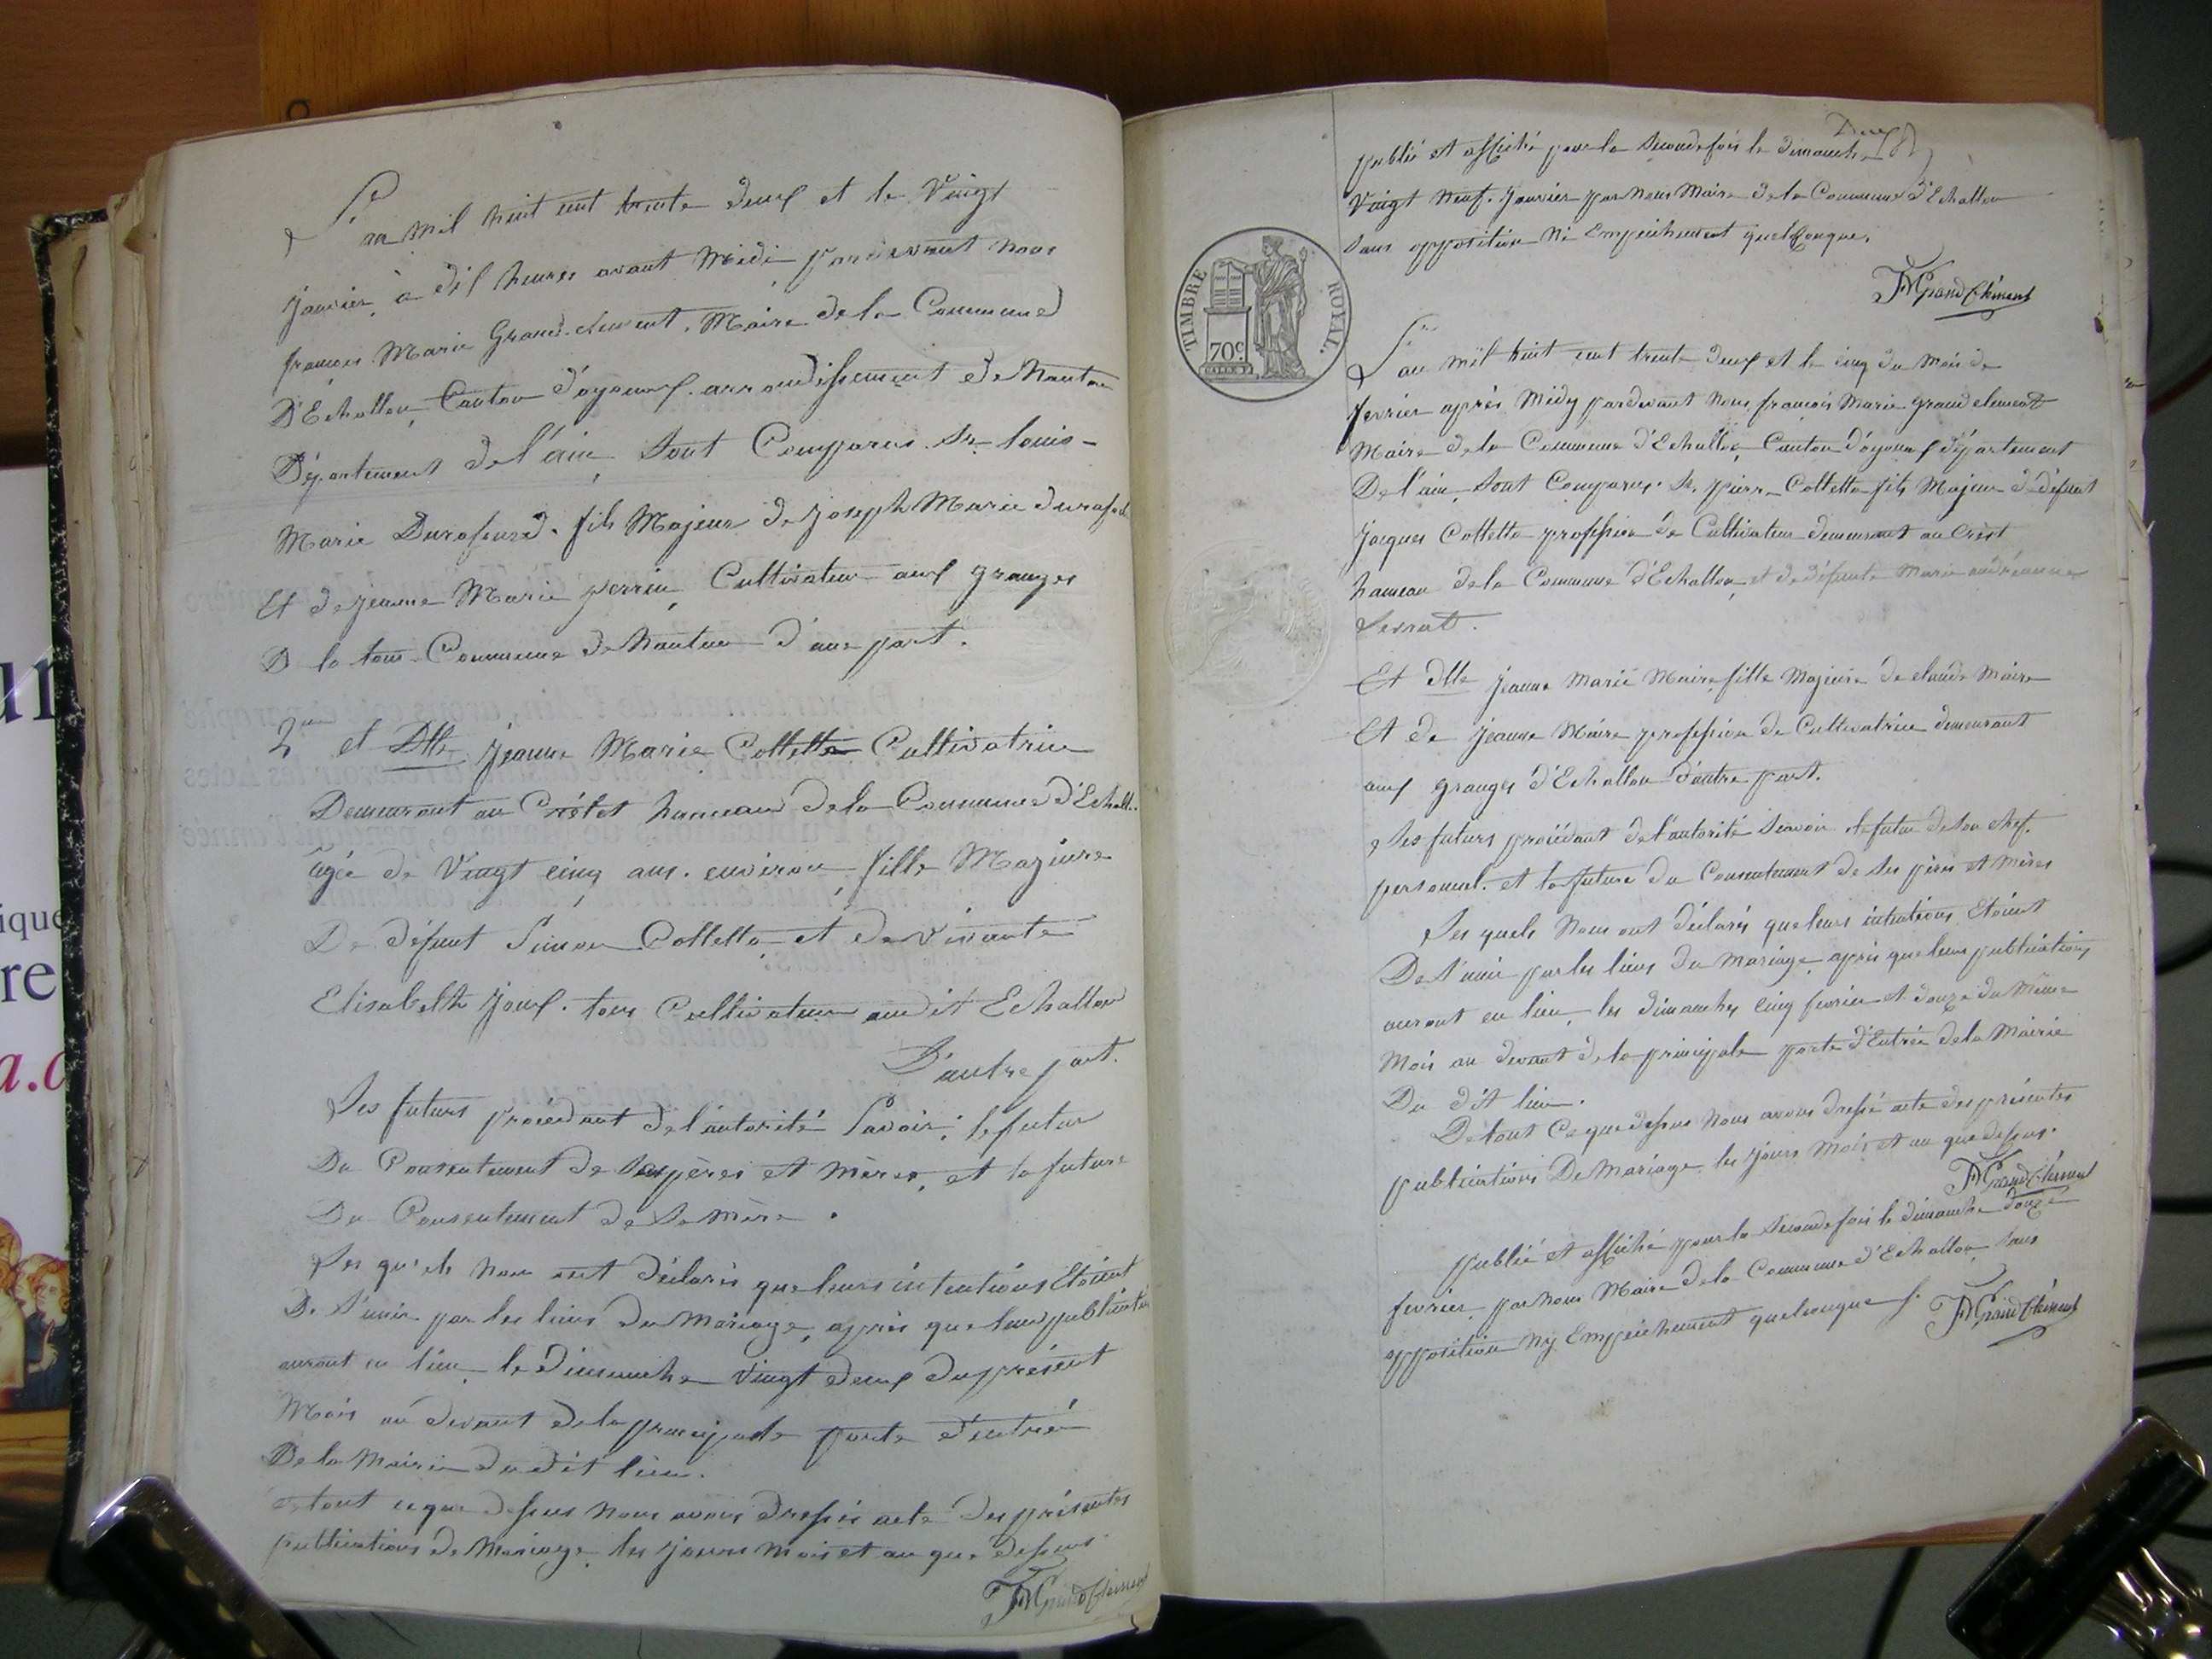 L'an mil huit cent trente deux et le Vingt
Janvier, à dix heures avant Midi pardevant nous
françois Marie Grand-clement, Maire de la Commune
D'Echallon, Canton d'oyonnax arrondissement de Nantua
Département de l'ain, sont Comparus Sr. louis-
Marie Durafourd. fils Majeur de Joseph Marie durafourd
Et de jeanne Marie perrin, Cultivateur aux granges
D la tour Commune de Nantua d'une part.
2me et Dlle jeanne Marie Collette Cultivatrice
Demeurant au Crétet hameau de la Commune d'Echall..
âgée de Vingt cinq ans. environ, fille Majeure
De défunt Simon Collette, et de vivante
Elisabeth joux. tous Cultivateurs audit Echallon
D'autre part.
Les futurs procédant de l'autorité Savoir; le futur
Du Consentement de Ses pères et mères, et la future
Du Consentement de Sa mère.
Les quels nous ont déclarés que leurs intentions Etoient
De S'unir par les liens du Mariage, après que leurs publications
auront eu lieu, le Dimanche Vingt deux du présent
Mois au devant de la principale porte d'entrée
De la Mairie du dit lieu.
De tout ce que dessus nous avons dressés acte des présentes
publications de Mariage, les jours mois et an que dessus
FMGrandClément
Deux
publié et affiché pour la Seconde fois le dimanche
Vingt Neuf. Janvier par Nous Maire de la Commune d'Echallon
Sans opposition Ni Empêchement quelconque.
FMGrandClément
TIMBRE ROYAL.
70c.
L'an mil huit cent trente deux et le cinq du Mois de
fevrier après Midy pardevant Nous françois Marie grandclement
Maire de la Commune d'Echallon, Canton d'oyonnax département
De l'ain, Sont Comparus Sr. pierre Collette fils Majeur de défunt
Jacques Collette profession de Cultivateur demeurant au Crêt
hameau de la Commune d'Echallon, et de défunte Marie andréanne
Serrat.
Et Dlle jeanne Marie Maire, fille Majeure de claude Maire
Et de jeanne Maire profession de Cultivatrice demeurant
aux granges d'Echallon d'autre part.
Les futurs procédant de l'autorité Scavoir le futur de Son chef.
personnel. et la future du Consentement de Ses pères et Mères
Les quels Nous ont déclarés que leurs intentions Etoient
De S'unir par les liens du Mariage, après que leurs publications
auront eu lieu, les dimanches cinq fevrier et douze du Même
Mois au devant de la principale porte d'Entrée de la Mairie
Du dit lieu.
De tout Ce que dessus Nous avons dressé acte des présentes
publications De Mariage les jours Mois et an que dessus.
FMGrandClément
publié et affiché pour la Seconde fois le dimanche douze
fevrier par Nous Maire de la Commune d'Echallon, Sans
opposition Ny Empêchement quelconque
FMGrandClément